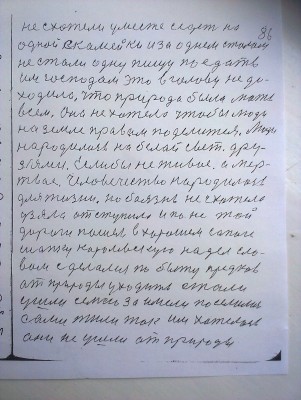 86
не схотели уместе седет на
одной скамейки иза однем столом
не стали одну пищу поедать
им господам это в голову не до-
ходило, что природа была мать
всем. Она не хотела чтобы люди
на земле правам поделится, Люди
народились на белай свет. дру-
зями. Если бы не живое, а мер-
твое. Человечество народилось
для жизни, но боязнь не схотело
узяла отступила и по не той
дороги пошел в хорошем сапоге
шапку королевскую надел сло-
вом сделался по быту предков
от природы уходить стали
ушли семью за имели поселились
сами жили так им хотелось
они не ушли от природы